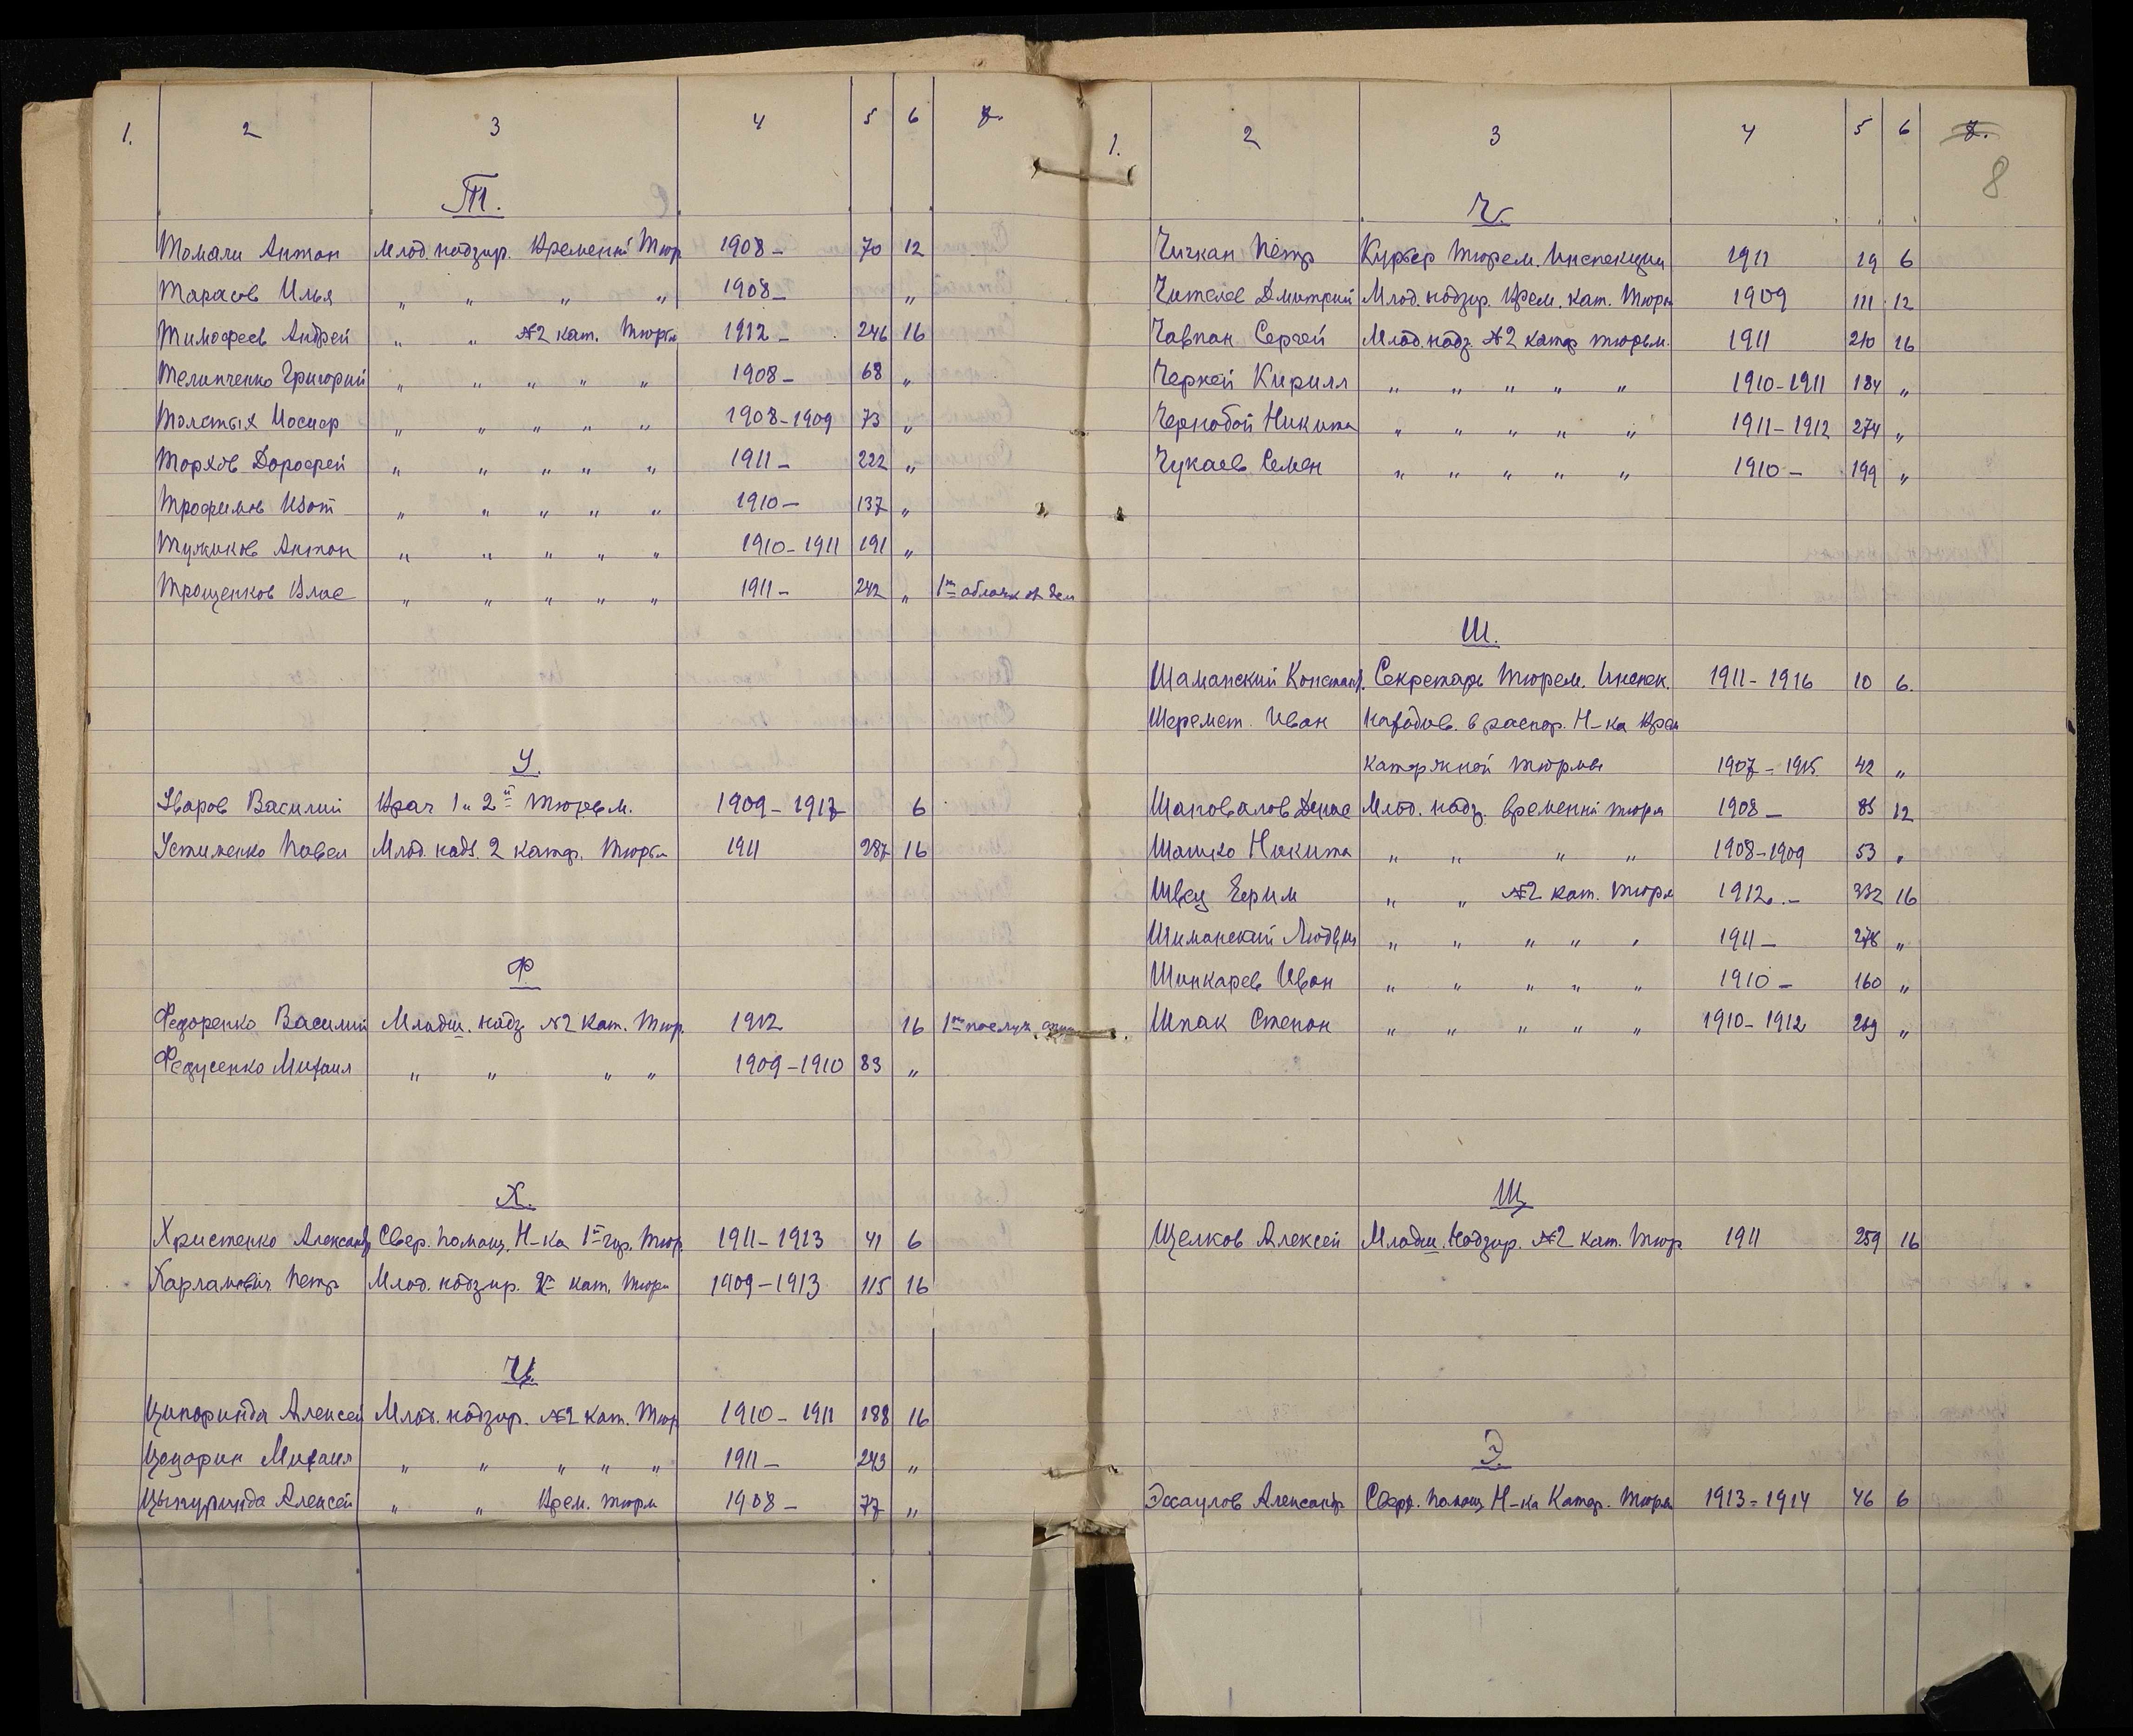 1. 2 3 4 5 6 7.
Т.
Томали Антон Млад. надзир. Временной Тюр 1908 – 70 12
Тарасов Илья „ „ „ „ 1908 – „
Тимофеев Андрей „ „ №2 кат. Тюрьм 1912 – 246 16
Телипченко Григорий „ „ „ „ „ 1908 – 68 „
Толстых Иосиф „ „ „ „ „ 1908-1909 73 „
Торхов Дорофей „ „ „ „ „ 1911 – 222 „
Трофимов Изот „ „ „ „ „ 1910 – 137 „
Тужиков Антон „ „ „ „ „ 1910-1911 191 „
Трощенков Влас „ „ „ „ „ 1911 – 242 „ 1
У.
Уваров Василий Врач 1 и 2й Тюрем. 1909-1917 6
Устименко Павел Млад. надз. 2 катор. Тюрьм 1911 287 16
Ф.
Федоренко Василий Младш. надз №2 Кат. Тюр. 1912 16 1
Федусенко Михаил „ „ „ „ 1909-1910 83 „
Х.
Христенко Александр Свер. помощ. Н-ка 1й гур. Тюр. 1911-1913 41 6
Харламович Петр Млад. надзир. 2й кат. Тюрь 1909-1913 115 16
Ц.
Ципоринда Алексей Млад. надзир. №2 кат. Тюр 1910-1911 188 16
Цецорин Михаил „ „ „ „ „ 1911 – 243 „
Цыпуринда Алексей „ „ Врем. тюрм 1908 – 77 „
1. 2 3 4 5 6 7.
8
Ч.
Чичкан Петр Курьер Тюрем. Инспекции 1911 19 6
Чителев Дмитрий Млад. надзир. Врем. кат. Тюрм 1909 111 12
Чавпан Сергей Млад. надз. №2 катор тюрьм. 1911 210 16
Черкей Кирилл „ „ „ „ „ 1910-1911 184 „
Чернобой Никита „ „ „ „ „ 1911-1912 274 „
Чукаев Семен „ „ „ „ „ 1910 – 199 „
Ш.
Шаманский Констант. Секретарь Тюрем. Инспек. 1911-1916 10 6.
Шеремет. Иван Находив. в распор. Н-ка Врем
каторжной тюрьмы 1907-1915 42 „
Шаповалов Денис Млад. надз. временной тюрм 1908 – 85 12
Шашко Никита „ „ „ „ 1908-1909 53 „
Швец Ефим „ „ №2 кат. Тюрм 1912. – 332 16
Шиманский Людвиг „ „ „ „ „ 1911 – „
Шинкарев Иван „ „ „ „ „ 1910 – 160 „
Шпак Степан „ „ „ „ „ 1910-1912 „
Щ
Щелков Алексей Младш. Надзир. №2 кат. Тюр 1911 259 16
Э.
Эксаулов Александр Сверх. помощ Н-ка Катор. Тюрм 1913-1914 46 6